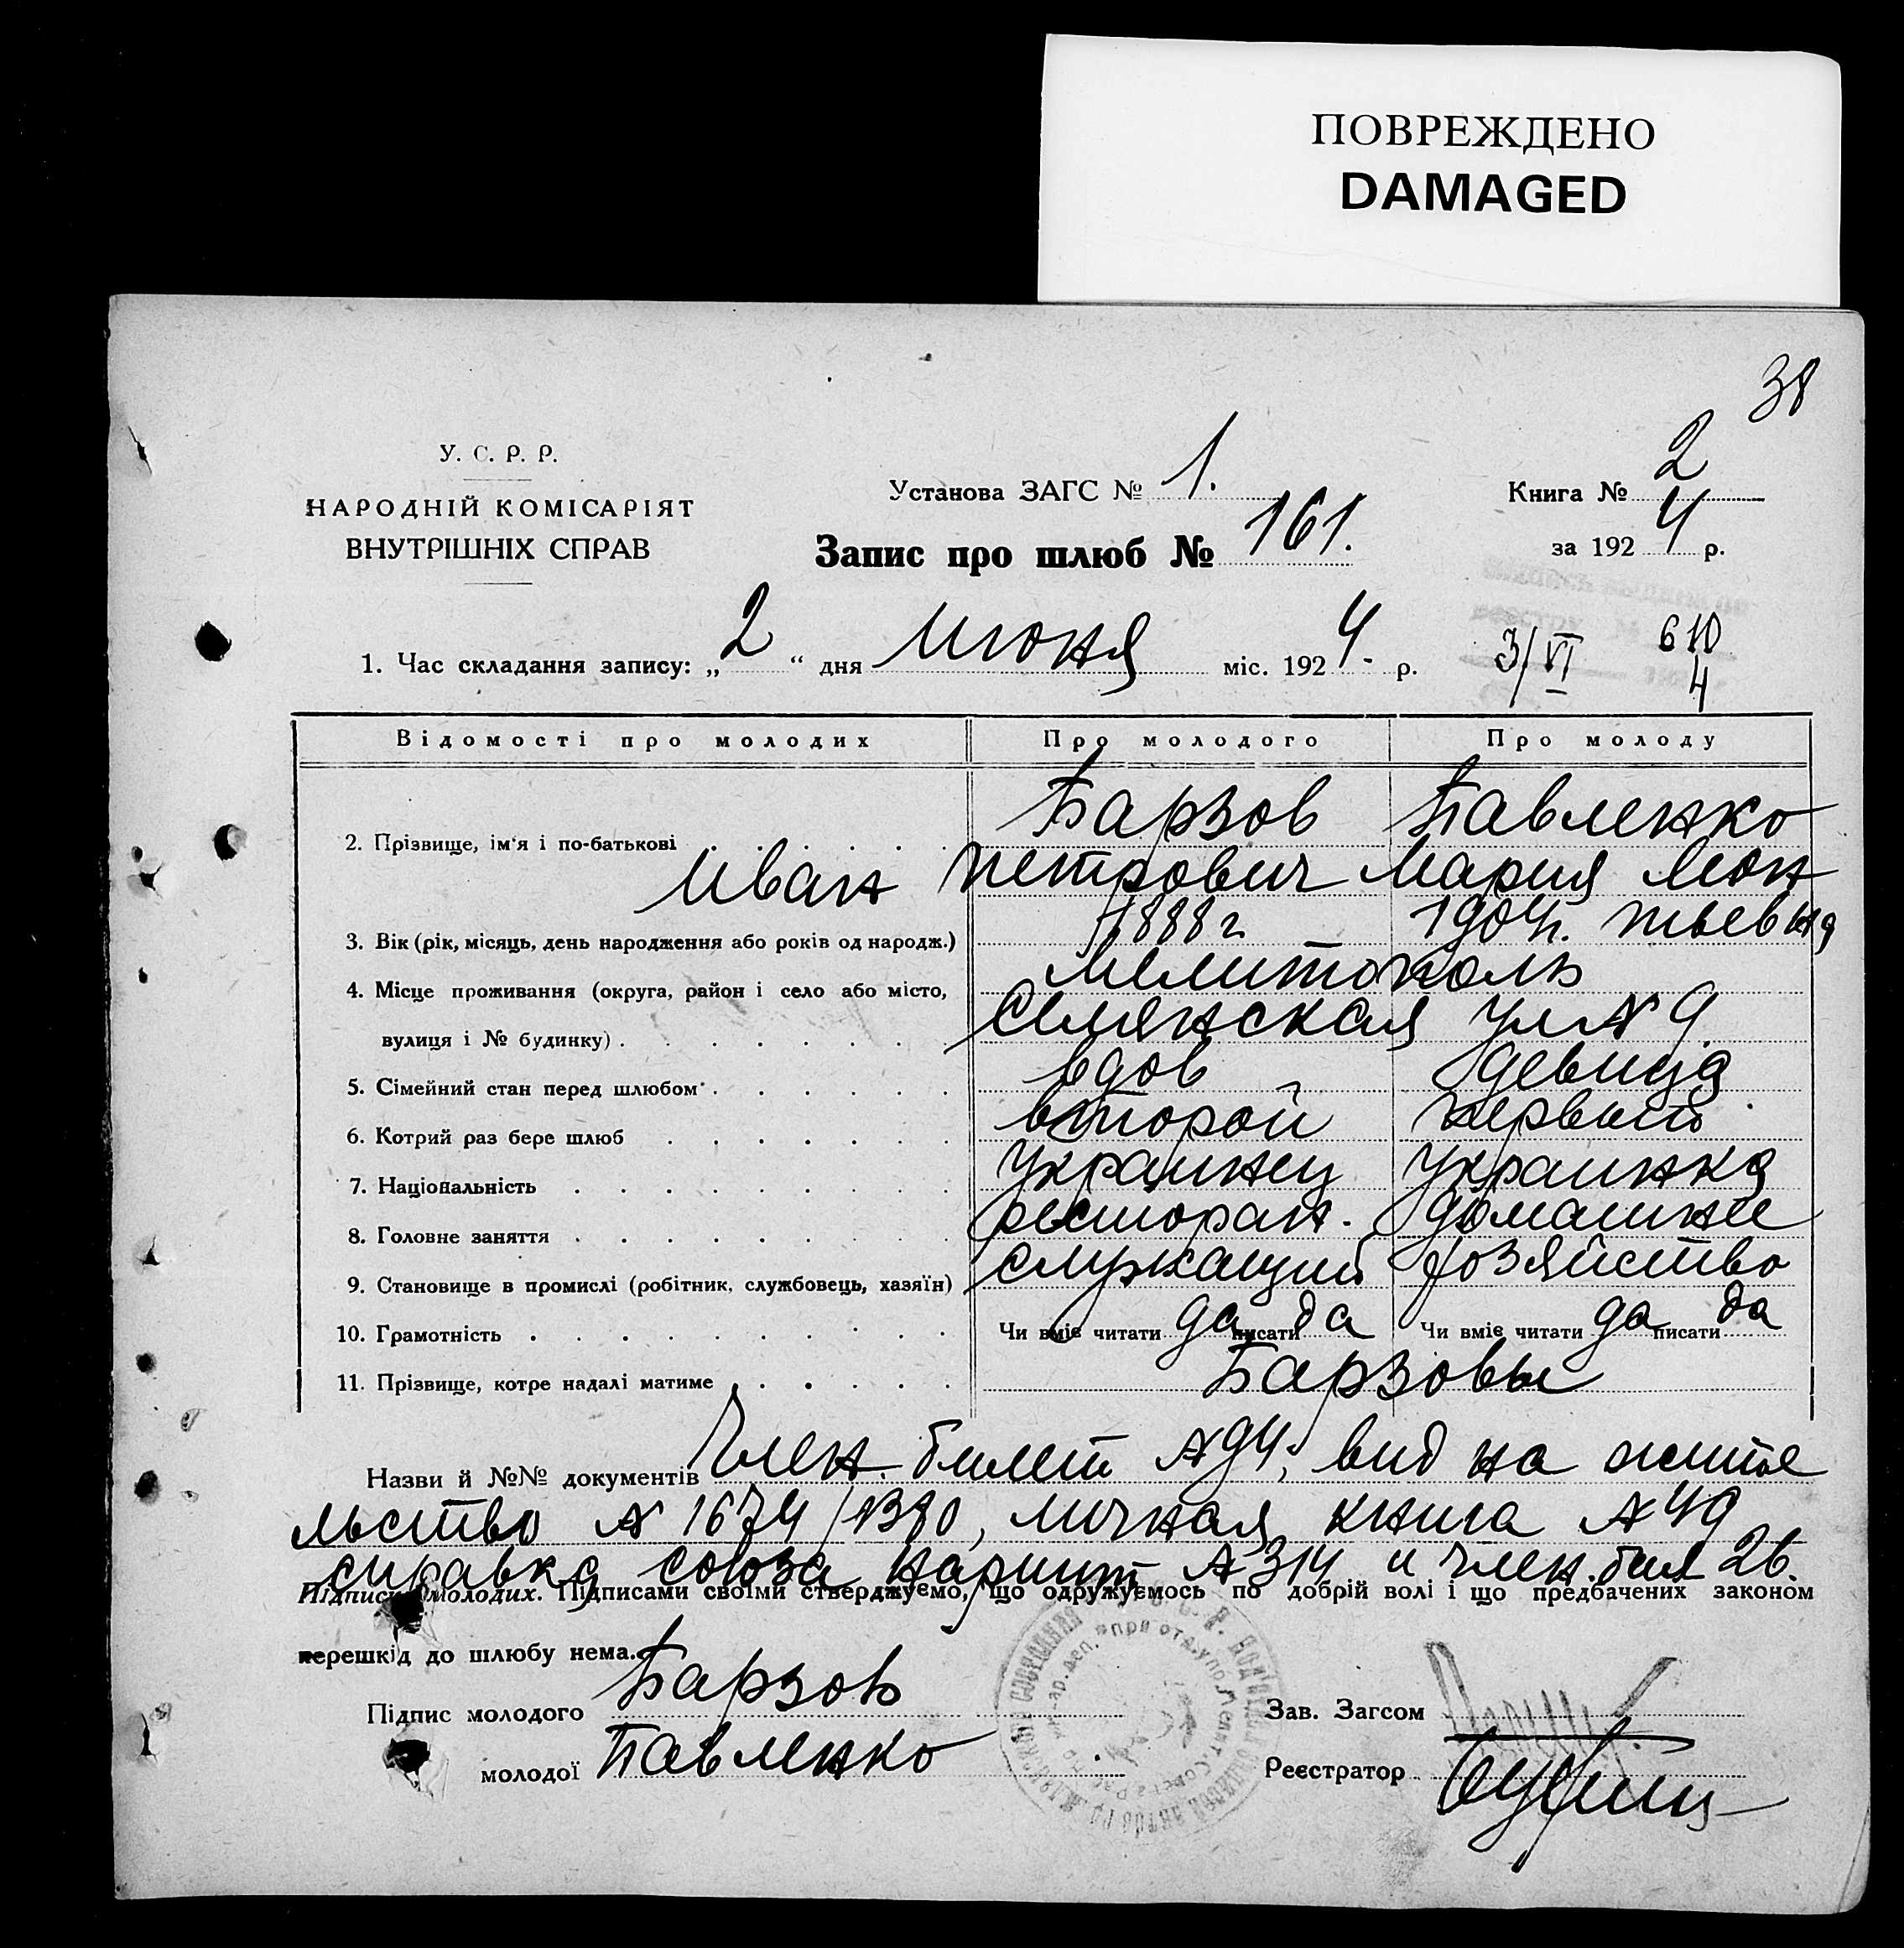 ПОВРЕЖДЕНО
DAMAGED
38
У. С. Р. Р.
НАРОДНІЙ КОМІСАРІЯТ
ВНУТРІШНІХ СПРАВ
Установа ЗАГС № 1.
Книга № 2
Запис про шлюб № 161.
за 1924 р.
1. Час складання запису: „2“ дня июня міс. 1924. р.
3/VI 610 4
Відомості про молодих Про молодого Про молоду
Барзов Павленко
2. Прізвище, ім'я і по-батькові
Иван Петрович Мария Леон
3. Вік (рік, місяць, день народження або років од народж.) 1888 г. 1904 г. тьевна
4. Місце проживання (округа, район і село або місто, Мелитополь
вулиця і № будинку) ул № 9
5. Сімейний стан перед шлюбом вдов девица
6. Котрий раз бере шлюб второй первый
7. Національність Украинец Украинка
8. Головне заняття ресторан. домашнее
9. Становище в промислі (робітник, службовець, хазяїн) служащий хозяйство
10. Грамотність Чи вміє читати да писати да Чи вміє читати да писати да
11. Прізвище, котре надалі матиме Барзовы
Назви й №№ документів Член. билет № 94, вид на жите
льство № 1674/1380, личная книга № 49
справка союза нарпит № 314 и член. бил 26.
Підписи молодих. Підписами своїми стверджуємо, що одружуємось по добрій волі і що предбачених законом
перешкід до шлюбу нема.
Підпис молодого Барзов
Зав. Загсом
молодої Павленко
Реєстратор